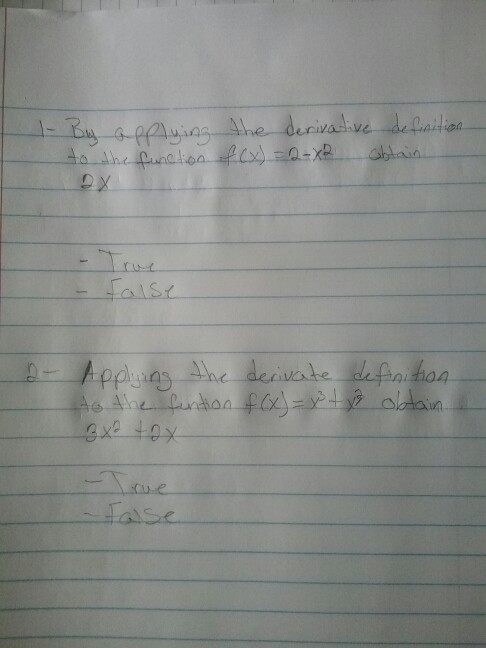 1- By applying the derivative definition
to the function f(x) = 2-x²  obtain
2x
- True
- False
2- Applying the derivate definition
to the funtion f(x) = x³ + obtain
3x² + 2x
- True
- False